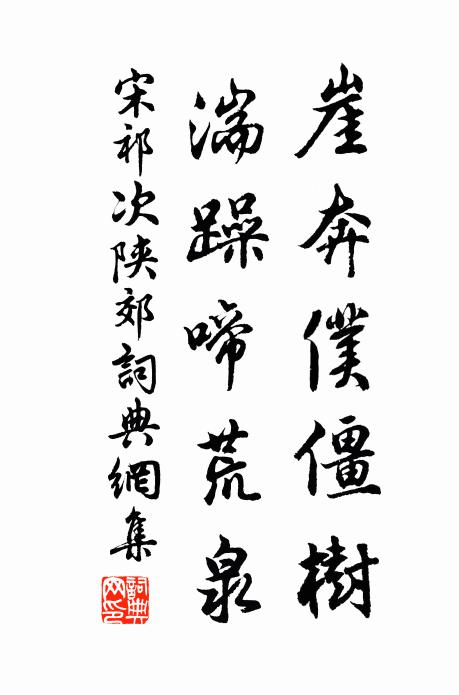 崖奔僕僵樹
湍躁啼荒泉
宋祁次陝郊詞典網集